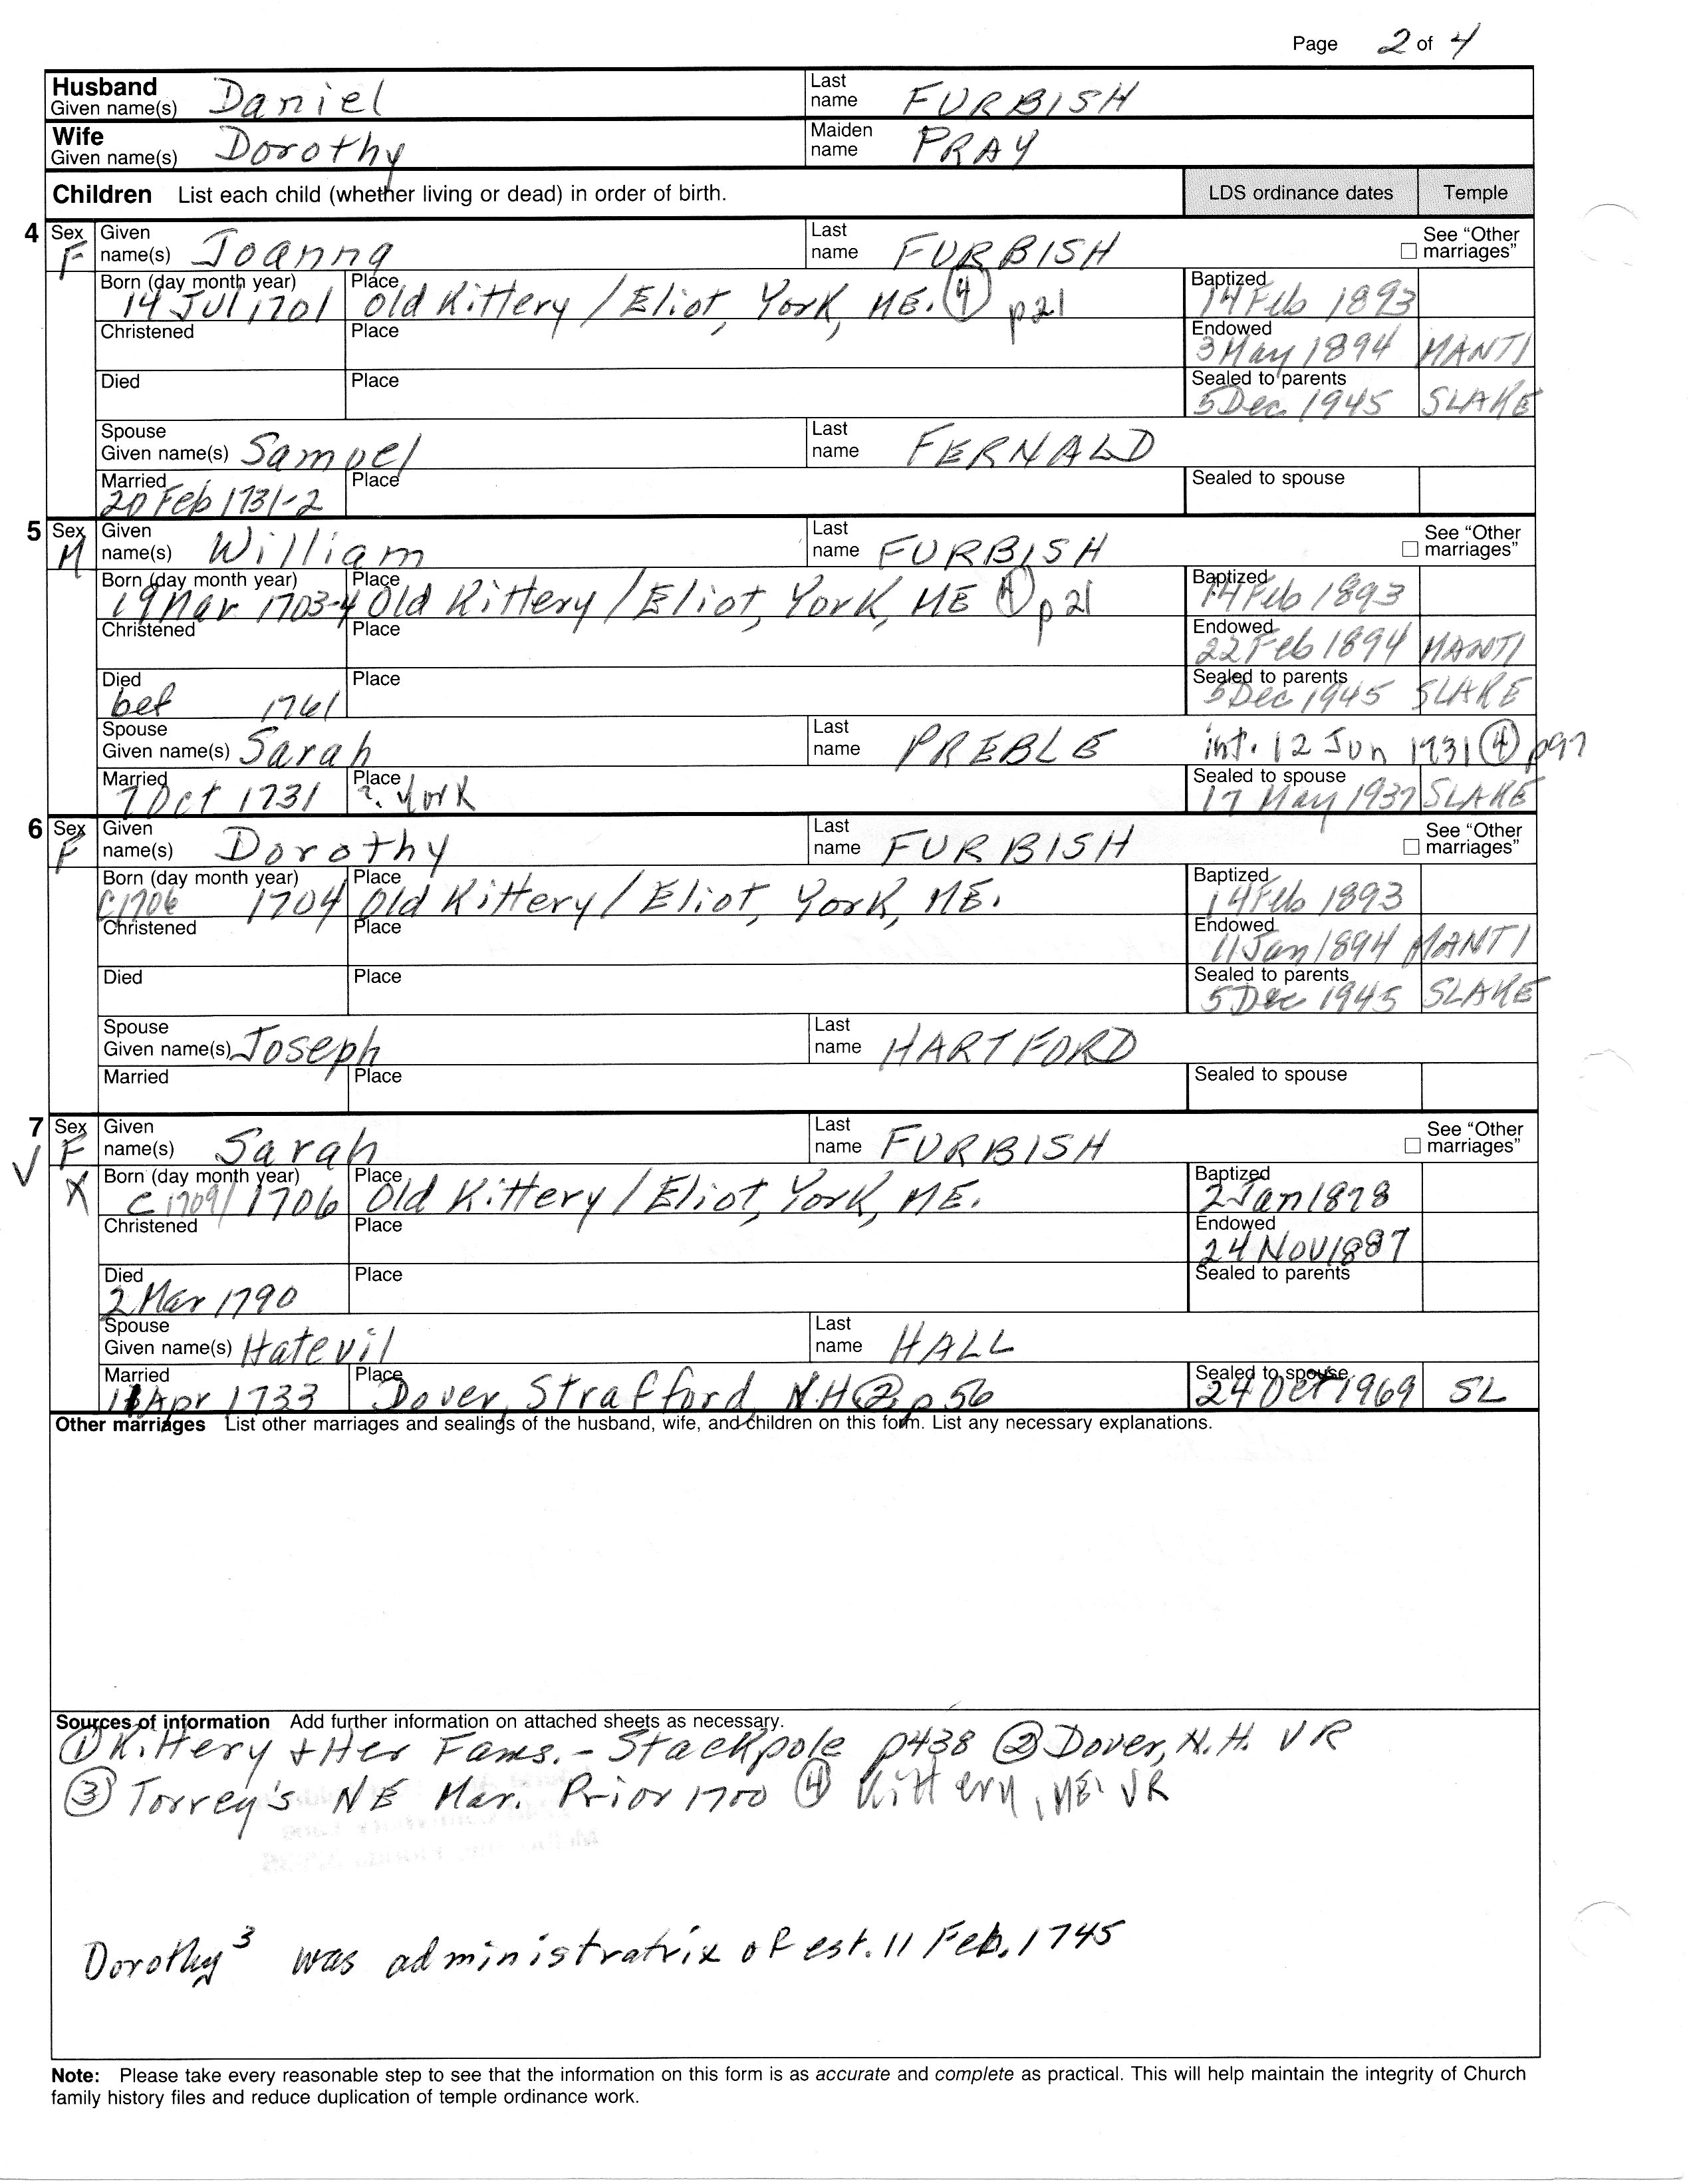 Page 2 of 4
Husband Given name(s) Daniel Last name FURBISH
Wife Given name(s) Dorothy Maiden name PRAY
Children List each child (whether living or dead) in order of birth. LDS ordinance dates Temple
4 Sex F Given name(s) Joanna Last name FURBISH See "Other marriages"
Born (day month year) 14 Jul 1701 Place Old Kittery / Eliot, York, ME. ④ p21 Baptized 14 Feb 1893
Christened Place Endowed 3 May 1894 MANTI
Died Place Sealed to parents 5 Dec 1945 SLAKE
Spouse Given name(s) Samuel Last name FERNALD
Married 20 Feb 1731-2 Place Sealed to spouse
5 Sex M Given name(s) William Last name FURBISH See "Other marriages"
Born (day month year) 19 Mar 1703-4 Place Old Kittery / Eliot, York, ME ④ p21 Baptized 14 Feb 1893
Christened Place Endowed 22 Feb 1894 MANTI
Died bef 1761 Place Sealed to parents 5 Dec 1945 SLAKE
Spouse Given name(s) Sarah Last name PREBLE int. 12 Jun 1731 ④ p97
Married 7 Oct 1731 Place ?. York Sealed to spouse 17 May 1937 SLAKE
6 Sex F Given name(s) Dorothy Last name FURBISH See "Other marriages"
Born (day month year) C1706 1704 Place Old Kittery / Eliot, York, ME. Baptized 14 Feb 1893
Christened Place Endowed 11 Jan 1894 MANTI
Died Place Sealed to parents 5 Dec 1945 SLAKE
Spouse Given name(s) Joseph Last name HARTFORD
Married Place Sealed to spouse
7 Sex F Given name(s) Sarah Last name FURBISH See "Other marriages"
√ X Born (day month year) C 1709/ 1706 Place Old Kittery / Eliot, York, ME. Baptized 2 Jan 1878
Christened Place Endowed 24 NOV 1887
Died 2 Mar 1790 Place Sealed to parents
Spouse Given name(s) Hatevil Last name HALL
Married Apr 1733 Place Dover, Strafford, N.H ② p 56 Sealed to spouse 24 Oct 1969 SL
Other marriages List other marriages and sealings of the husband, wife, and children on this form. List any necessary explanations.
Sources of information Add further information on attached sheets as necessary.
① Kittery + Her Fams. - Stackpole p438 ② Dover, N.H. VR
③ Torrey's NE Mar. Prior 1700 ④ Kittery, ME. VR
Dorothy³ was administratrix of est. 11 Feb. 1745
Note: Please take every reasonable step to see that the information on this form is as accurate and complete as practical. This will help maintain the integrity of Church
family history files and reduce duplication of temple ordinance work.